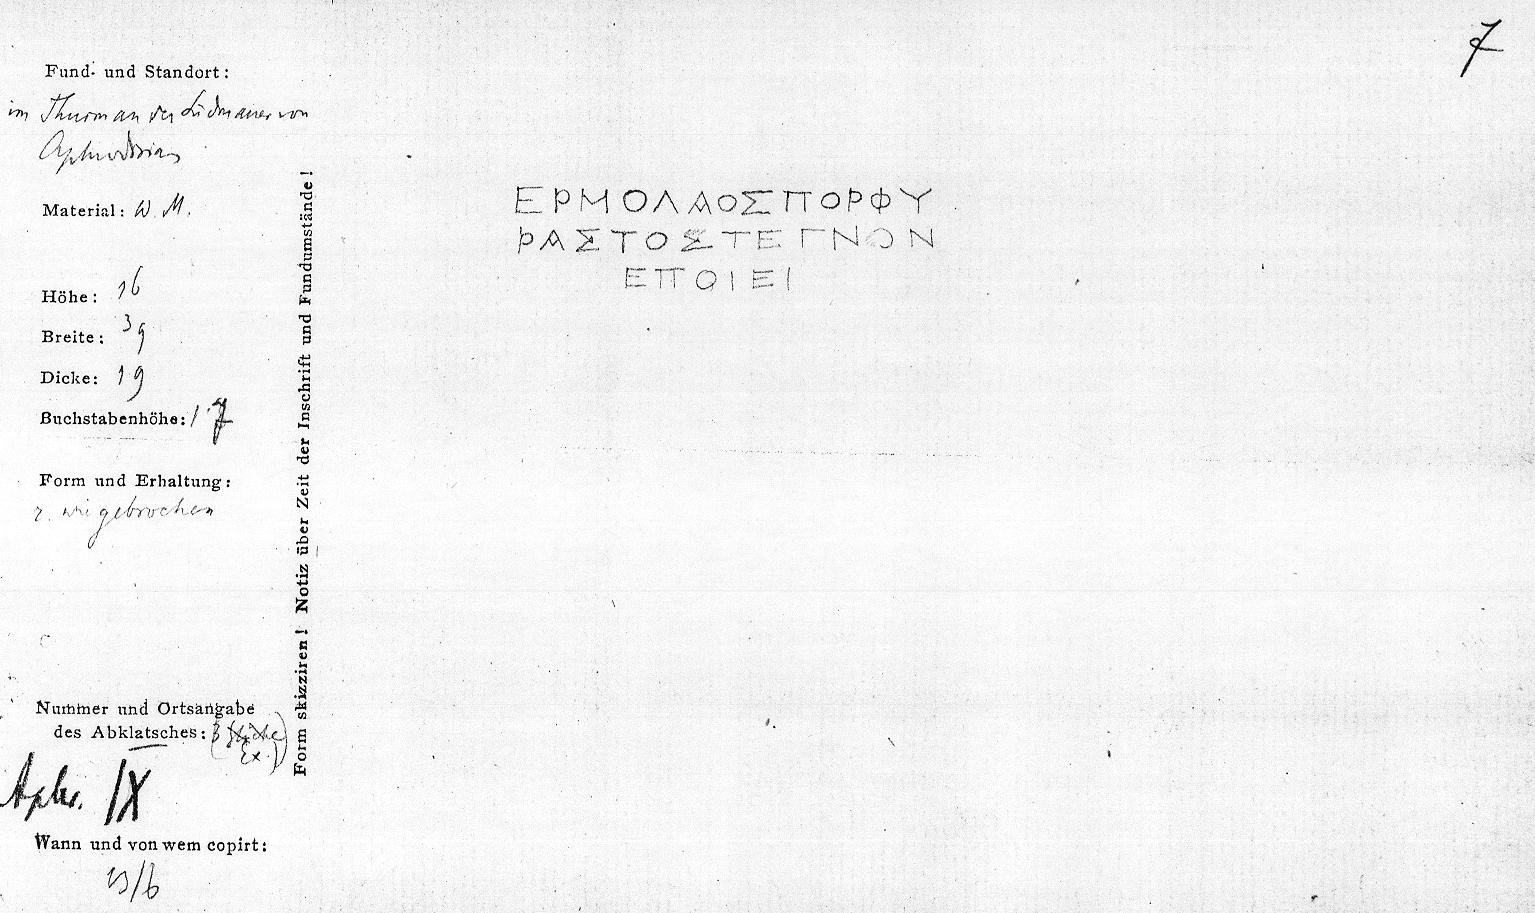 7
Fund- und Standort:
im Thurm an der Südmauer von
Aphrodisias
Material: W. M.
Höhe: 16
Breite: 39
Dicke: 19
Buchstabenhöhe: 1.7
Form und Erhaltung:
r. gebrochen
Nummer und Ortsangabe
des Abklatsches: (3
Ex.)
Aphr. IX
Wann und von wem copirt:
/6
Form skizziren! Notiz über Zeit der Inschrift und Fundumstände!
ΕΡΜΟΛΑΟΣΠΟΡΦΥ
ΡΑΣΤΟΣΤΕΓΝΟΝ
ΕΠΟΙΕΙ